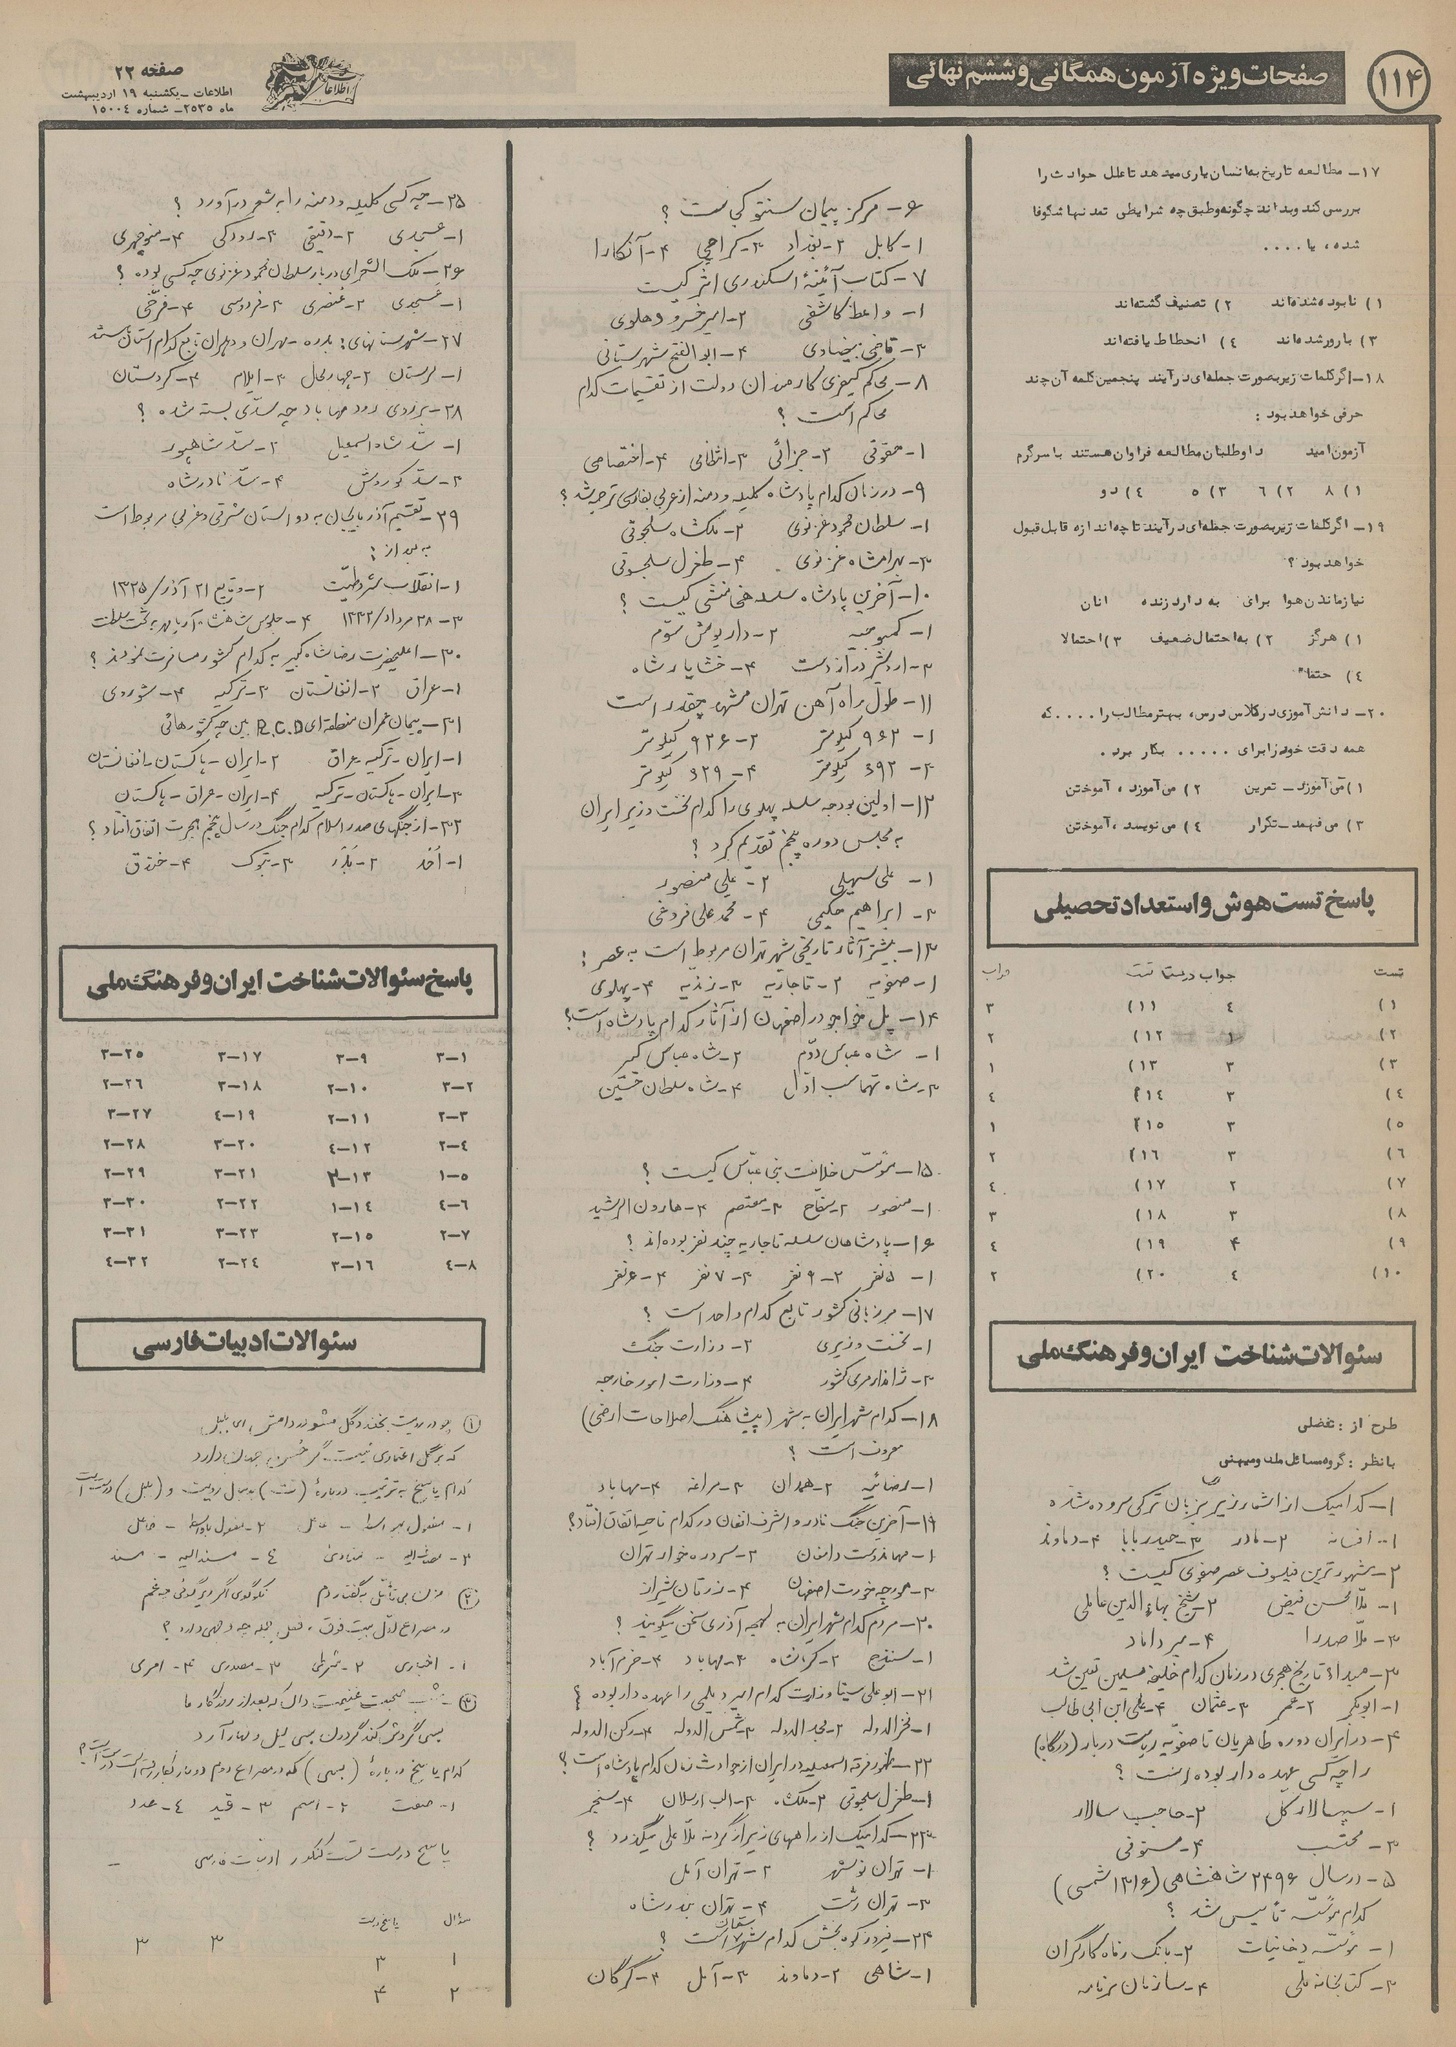 ۱۱۴
صفحات ویژه آزمون همگانی وششم نهائی
صفحه ۲۲
اطلاعات ـ یکشنبه ۱۹ اردیبهشت
ماه ۲۵۳۵ـ شماره ۱۵۰۰۴
۱۷ـ مطالعه تاریخ به انسان یاری میدهد تا علل حوادث را
بررسی کند و بداند چگونه و طبق چه شرایطی تمدنها شکوفا
شده، یا . . . .
۱) نابوده شده‌اند ۲) تصنیف گشته‌اند
۳) بارور شده‌اند ٤) انحطاط یافته‌اند
۱۸ـ اگر کلمات زیر بصورت جمله‌ای درآیند پنجمین کلمه آن چند
حرفی خواهد بود :
آزمون امید داوطلبان مطالعه فراوان هستند با سرگرم
۱) ۸ ۲) ٦ ۳) ٥ ٤) دو
۱۹ـ اگر کلمات زیر بصورت جمله‌ای درآیند تا چه اندازه قابل قبول
خواهد بود ؟
نیاز ماندن هوا برای به دارد زنده انسان
۱) هرگز ۲) به احتمال ضعیف ۳) احتمالا
٤) حتما"
۲۰ـ دانش آموزی در کلاس درس، بهتر مطالب را . . . . که
همه دقت خود را برای . . . . . بکار برد .
۱) می‌آموزد ـ تمرین ۲) می‌آموزد ، آموختن
۳) می فهمد ـ تکرار ٤) می نویسد ، آموختن
پاسخ تست هوش و استعداد تحصیلی
تست جواب درست تست جواب
۱) ٤ ۱۱) ۳
۲) ۱ ۱۲) ۲
۳) ۳ ۱۳) ۱
٤) ۳ ۱٤) ٤
٥) ۳ ۱٥) ۱
٦) ۳ ۱٦) ۲
۷) ۲ ۱۷) ٤
۸) ۳ ۱۸) ۳
۹) ۴ ۱۹) ٤
۱۰) ٤ ۲۰) ۲
سئوالات شناخت ایران و فرهنگ ملی
طرح از : تفضلی
بانظر : گروه مسائل ملی و میهنی
۱ـ کدامیک از اشعار زیر بزبان ترکی سروده شده
۱ـ افسانه ۲ـ مادر ۳ـ حیدربابا ۴ـ دماوند
۲ـ مشهورترین فیلسوف عصر صفوی کیست ؟
۱ـ ملا محسن فیض ۲ـ شیخ بهاء الدین عاملی
۳ـ ملا صدرا ۴ـ میرداماد
۳ـ مبداء تاریخ هجری در زمان کدام خلیفه مسلمین تعیین شد
۱ـ ابوبکر ۲ـ عمر ۳ـ عثمان ۴ـ علی ابن ابی طالب
۴ـ در ایران دوره طاهریان تا صفویه ریاست دربار (درگاه)
را چه کسی عهده دار بوده است ؟
۱ـ سپهسالار کل ۲ـ حاجب سالار
۳ـ محتسب ۴ـ مستوفی
۵ـ در سال ۲۴۹۶ شاهنشاهی (۱۳۱۶ شمسی)
کدام مؤسسه تأسیس شد ؟
۱ـ مؤسسه دخانیات ۲ـ بانک رفاه کارگران
۳ـ کتابخانه ملی ۴ـ سازمان برنامه
۶ـ مرکز پیمان سنتو کجاست ؟
۱ـ کابل ۲ـ بغداد ۳ـ کراچی ۴ـ آنکارا
۷ـ کتاب آئینهٔ اسکندری اثر کیست
۱ـ واعظ کاشفی ۲ـ امیر خسرو دهلوی
۳ـ قاضی بیضاوی ۴ـ ابوالفتح شهرستانی
۸ـ محاکم کیفری کارمندان دولت از تقسیمات کدام
محاکم است ؟
۱ـ حقوقی ۲ـ جزائی ۳ـ انتظامی ۴ـ اختصاصی
۹ـ در زمان کدام پادشاه کلیله و دمنه از عربی بفارسی ترجمه شد ؟
۱ـ سلطان محمود غزنوی ۲ـ ملکشاه سلجوقی
۳ـ بهرامشاه غزنوی ۴ـ طغرل سلجوقی
۱۰ـ آخرین پادشاه سلسله هخامنشی کیست ؟
۱ـ کمبوجیه ۲ـ داریوش سوم
۳ـ اردشیر دراز دست ۴ـ خشایارشاه
۱۱ـ طول راه آهن تهران مشهد چقدر است
۱ـ ۹۹۲ کیلومتر ۲ـ ۹۲۶ کیلومتر
۳ـ ۳۹۲ کیلومتر ۴ـ ۳۲۹ کیلومتر
۱۲ـ اولین بودجه سلسله پهلوی را کدام نخست وزیر ایران
به مجلس دوره پنجم تقدیم کرد ؟
۱ـ علی سهیلی ۲ـ علی منصور
۳ـ ابراهیم حکیمی ۴ـ محمد علی فروغی
۱۳ـ بیشتر آثار تاریخی شهر تهران مربوط است به عصر :
۱ـ صفویه ۲ـ قاجاریه ۳ـ زندیه ۴ـ پهلوی
۱۴ـ پل خواجو در اصفهان از آثار کدام پادشاه است؟
۱ـ شاه عباس دوم ۲ـ شاه عباس کبیر
۳ـ شاه تهماسب اول ۴ـ شاه سلطان حسین
۱۵ـ مؤسس خلافت بنی عباس کیست ؟
۱ـ منصور ۲ـ سفاح ۳ـ معتصم ۴ـ هارون الرشید
۱۶ـ پادشاهان سلسله قاجاریه چند نفر بوده اند ؟
۱ـ ۵ نفر ۲ـ ۹ نفر ۳ـ ۷ نفر ۴ـ ۶ نفر
۱۷ـ مرزبانی کشور تابع کدام واحد است ؟
۱ـ نخست وزیری ۲ـ وزارت جنگ
۳ـ ژاندارمری کشور ۴ـ وزارت امور خارجه
۱۸ـ کدام شهر ایران به شهر (پیشاهنگ اصلاحات ارضی)
معروف است ؟
۱ـ رضائیه ۲ـ همدان ۳ـ مراغه ۴ـ مهاباد
۱۹ـ آخرین جنگ نادر و اشرف افغان در کدام ناحیه اتفاق افتاد؟
۱ـ مهماندوست دامغان ۲ـ سردره خوار تهران
۳ـ مورچه خورت اصفهان ۴ـ زرقان شیراز
۲۰ـ مردم کدام شهر ایران به لهجه آذری سخن میگویند ؟
۱ـ سنندج ۲ـ کرمانشاه ۳ـ مهاباد ۴ـ خرم آباد
۲۱ـ ابو علی سینا وزارت کدام امیر دیلمی را عهده دار بوده ؟
۱ـ فخرالدوله ۲ـ مجدالدوله ۳ـ شمس الدوله ۴ـ رکن الدوله
۲۲ـ ظهور فرقه اسمعیلیه در ایران از حوادث زمان کدام پادشاه است؟
۱ـ طغرل سلجوقی ۲ـ ملکشاه ۳ـ الب ارسلان ۴ـ سنجر
۲۳ـ کدامیک از راههای زیر از گردنه ملا علی میگذرد ؟
۱ـ تهران نوشهر ۲ـ تهران آمل
۳ـ تهران رشت ۴ـ تهران بندر شاه
۲۴ـ فیروزکوه بخش کدام شهرستان است ؟
۱ـ شاهی ۲ـ دماوند ۳ـ آمل ۴ـ گرگان
۲۵ـ چه کسی کلیله و دمنه را به شعر درآورد ؟
۱ـ عسجدی ۲ـ دقیقی ۳ـ رودکی ۴ـ منوچهری
۲۶ـ ملک الشعرای دربار سلطان محمود غزنوی چه کسی بوده ؟
۱ـ عسجدی ۲ـ عنصری ۳ـ فردوسی ۴ـ فرخی
۲۷ـ شهرستانهای : بدره ـ مهران و دهلران تابع کدام استان هستند
۱ـ لرستان ۲ـ چهارمحال ۳ـ ایلام ۴ـ کردستان
۲۸ـ بر روی رود مهاباد چه سدی بسته شده ؟
۱ـ سد شاه اسمعیل ۲ـ سد شاهپور
۳ـ سد کوروش ۴ـ سد نادرشاه
۲۹ـ تقسیم آذربایجان به دو استان شرقی و غربی مربوط است
به بعد از :
۱ـ انقلاب مشروطیت ۲ـ وقایع ۲۱ آذر/۱۳۲۵
۳ـ ۲۸ مرداد/۱۳۳۲ ۴ـ جلوس شاهنشاه آریامهر به تخت سلطنت
۳۰ـ اعلیحضرت رضا شاه کبیر به کدام کشور مسافرت نمودند ؟
۱ـ عراق ۲ـ افغانستان ۳ـ ترکیه ۴ـ شوروی
۳۱ـ پیمان عمران منطقه ای R.C.D بین چه کشورهائی
۱ـ ایران ـ ترکیه ـ عراق ۲ـ ایران ـ پاکستان ـ افغانستان
۳ـ ایران ـ پاکستان ـ ترکیه ۴ـ ایران ـ عراق ـ پاکستان
۳۲ـ از جنگهای صدر اسلام کدام جنگ در سال پنجم هجرت اتفاق افتاد ؟
۱ـ اُحُد ۲ـ بَدر ۳ـ تبوک ۴ـ خندق
پاسخ سئوالات شناخت ایران و فرهنگ ملی
۱ـ۳ ۹ـ۳ ۱۷ـ۳ ۲۵ـ۳
۲ـ۳ ۱۰ـ۲ ۱۸ـ۳ ۲۶ـ۲
۳ـ۲ ۱۱ـ۲ ۱۹ـ٤ ۲۷ـ۳
٤ـ۲ ۱۲ـ٤ ۲۰ـ۳ ۲۸ـ۲
٥ـ۱ ۱۳ـ۲ ۲۱ـ۳ ۲۹ـ۲
٦ـ٤ ۱٤ـ۱ ۲۲ـ۲ ۳۰ـ۳
۷ـ۲ ۱٥ـ۲ ۲۳ـ۳ ۳۱ـ۳
۸ـ٤ ۱٦ـ۳ ۲٤ـ۲ ۳۲ـ٤
سئوالات ادبیات فارسی
۱ چو در رویت بخندد گل مشو در دامش ای بلبل
که بر گل اعتمادی نیست گر حسن جهان دارد
کدام پاسخ به ترتیب دربارهٔ (ت) بدنبال رویت و (بلبل) درست است
۱ـ مفعول بیواسطه ـ فاعل ۲ـ مفعول باواسطه ـ فاعل
۳ـ مضاف الیه ـ منادی ٤ـ مسندالیه ـ مسند
۲ مزن بی تأمل به گفتار دم نکو گوی اگر دیر گوئی چه غم
در مصراع اول بیت فوق ، فعل جمله چه وجهی دارد ؟
۱ـ اخباری ۲ـ شرطی ۳ـ مصدری ۴ـ امری
۳ شب صحبت غنیمت دان که بعد از روزگار ما
بسی گردش کند گردون بسی لیل و نهار آرد
کدام پاسخ دربارهٔ (بسی) که در مصراع دوم دوبار تکرار شده است درست است؟
۱ـ صفت ۲ـ اسم ۳ـ قید ٤ـ عدد
پاسخ درست تست کنکور ادبیات فارسی
سئوال پاسخ درست
۱ ۳ ۳ ۳
۲ ۴